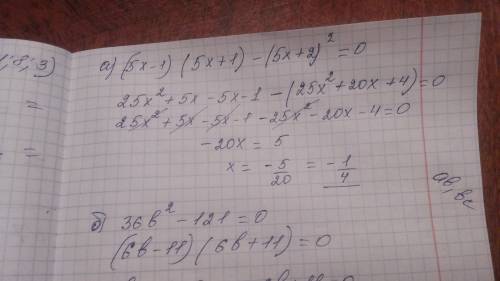 1; 8; 3)
=
=
а) (5x-1) (5x+1) - (5x+2)² = 0
25x² + 5x - 5x - 1 - (25x² + 20x + 4) = 0
25x² + 5x - 5x - 1 - 25x² - 20x - 4 = 0
-20x = 5
x = -5/20 = -1/4
б) 36b² - 121 = 0
(6b - 11) (6b + 11) = 0